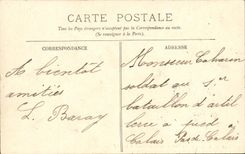 CARTE POSTALE
Tous les Pays étrangers n'acceptent pas la Correspondance au recto.
(Se renseigner à la Poste).
CORRESPONDANCE
ADRESSE
A bientôt
amitiés
L. Baray
Monsieur Cabaron
soldat au 1er
bataillon d'artil
lerie à pied à
Calais Pas de Calais